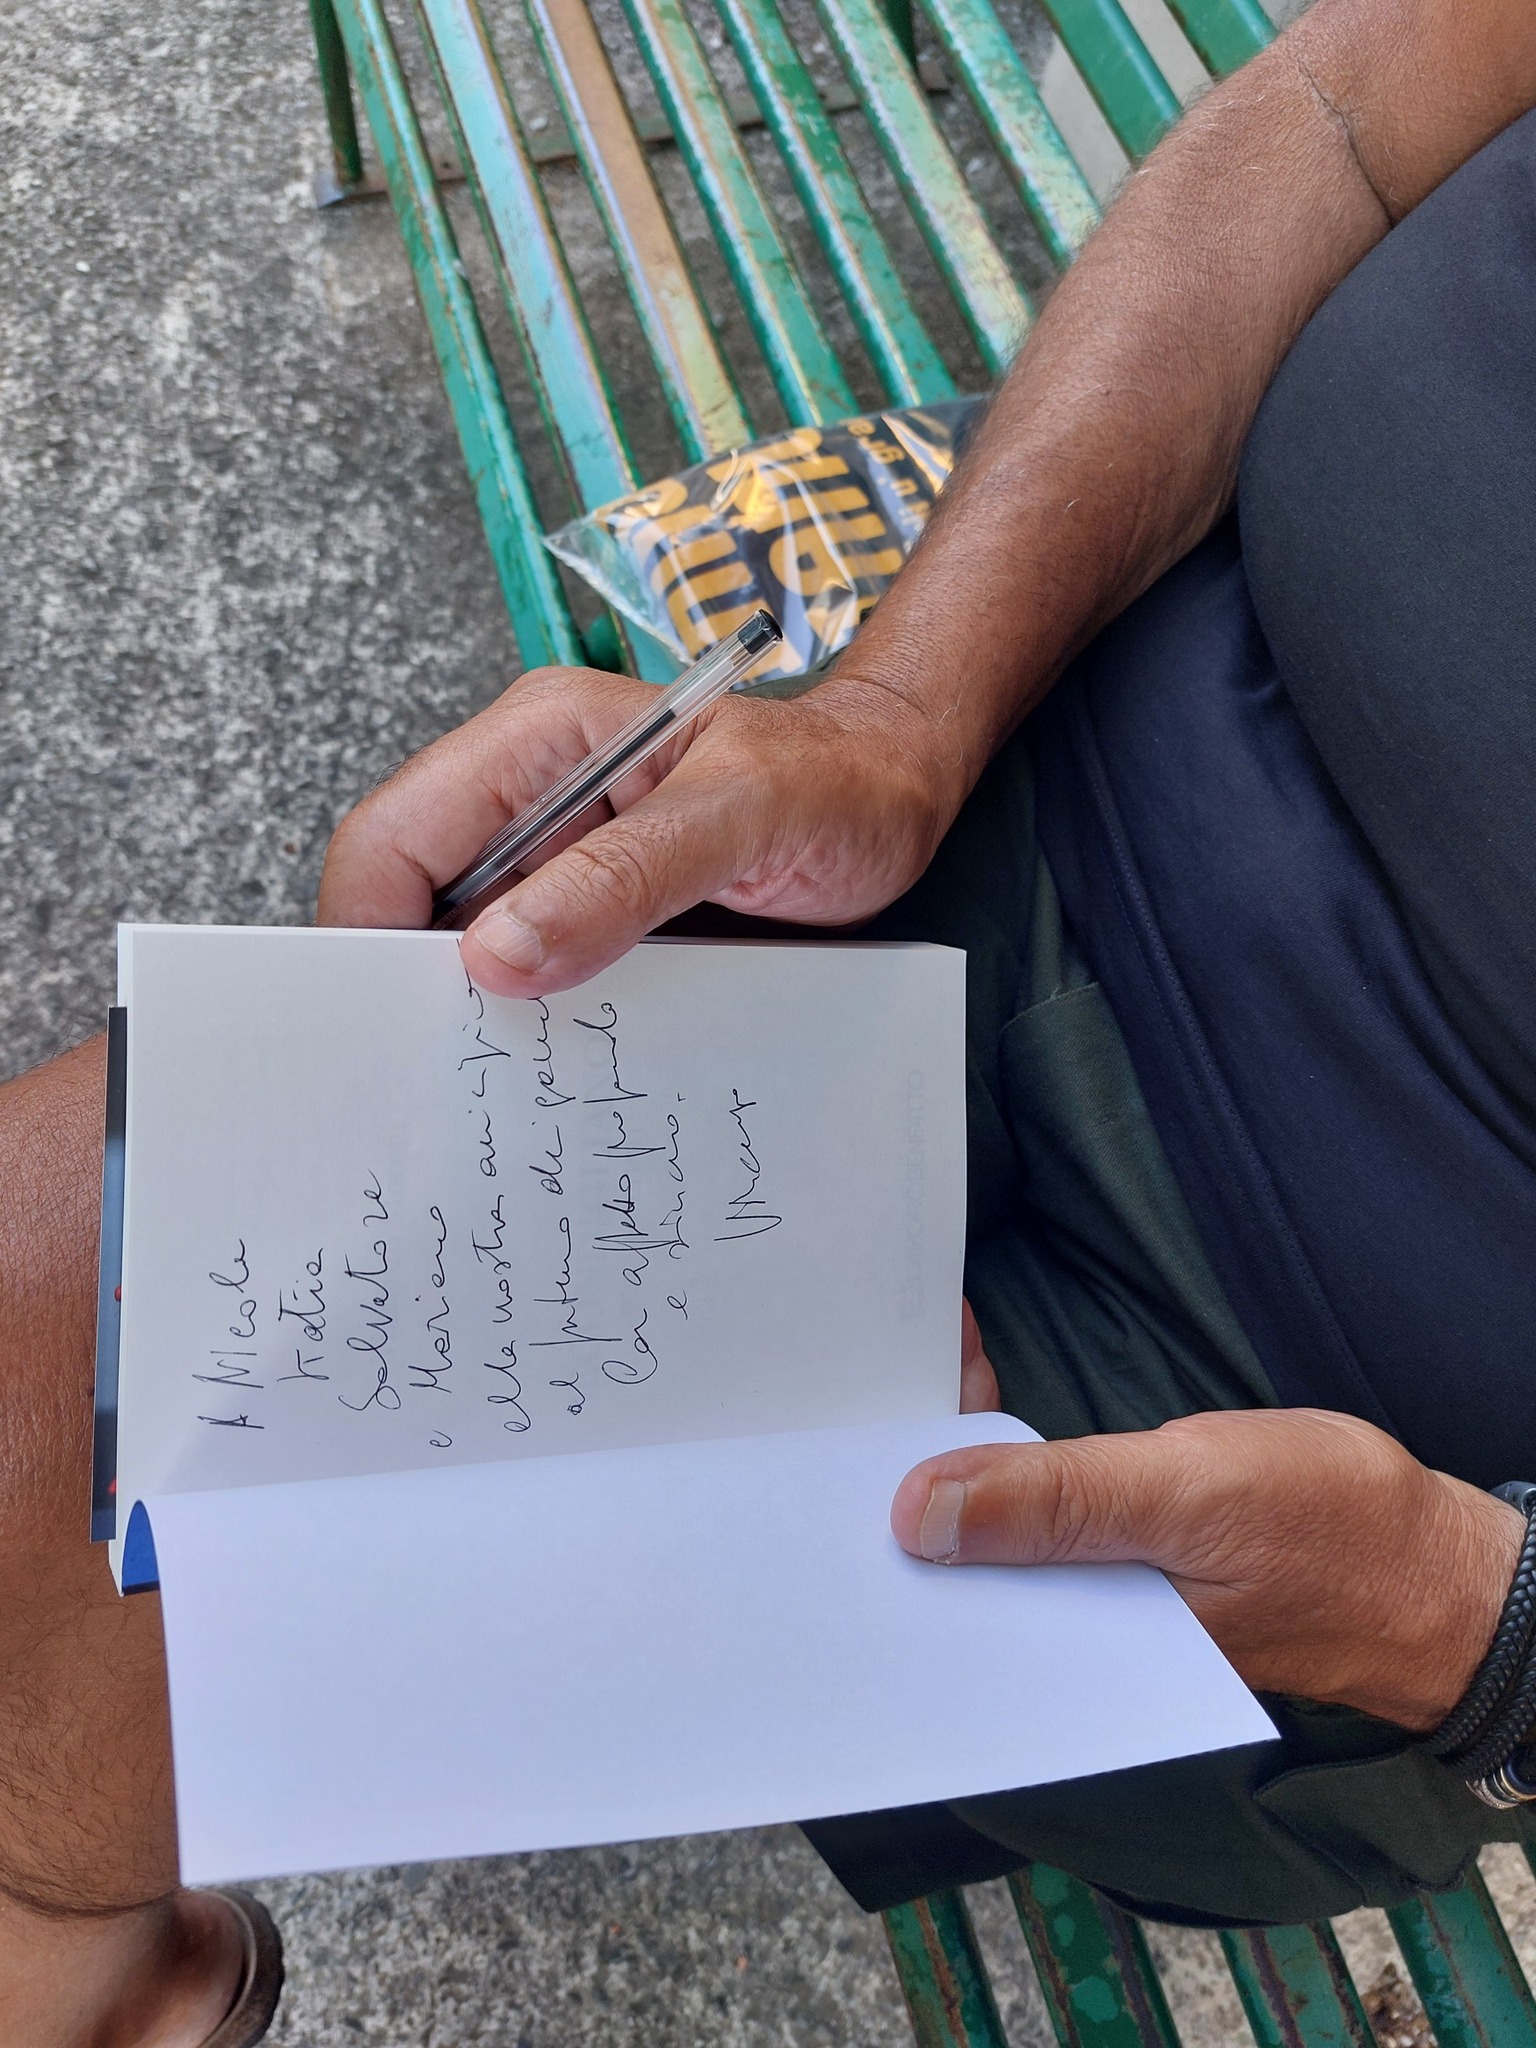 A Nicola
Katia
Salvatore
e Mariano
alla nostra amicizia
al futuro di
Con affetto profondo
e sincero.